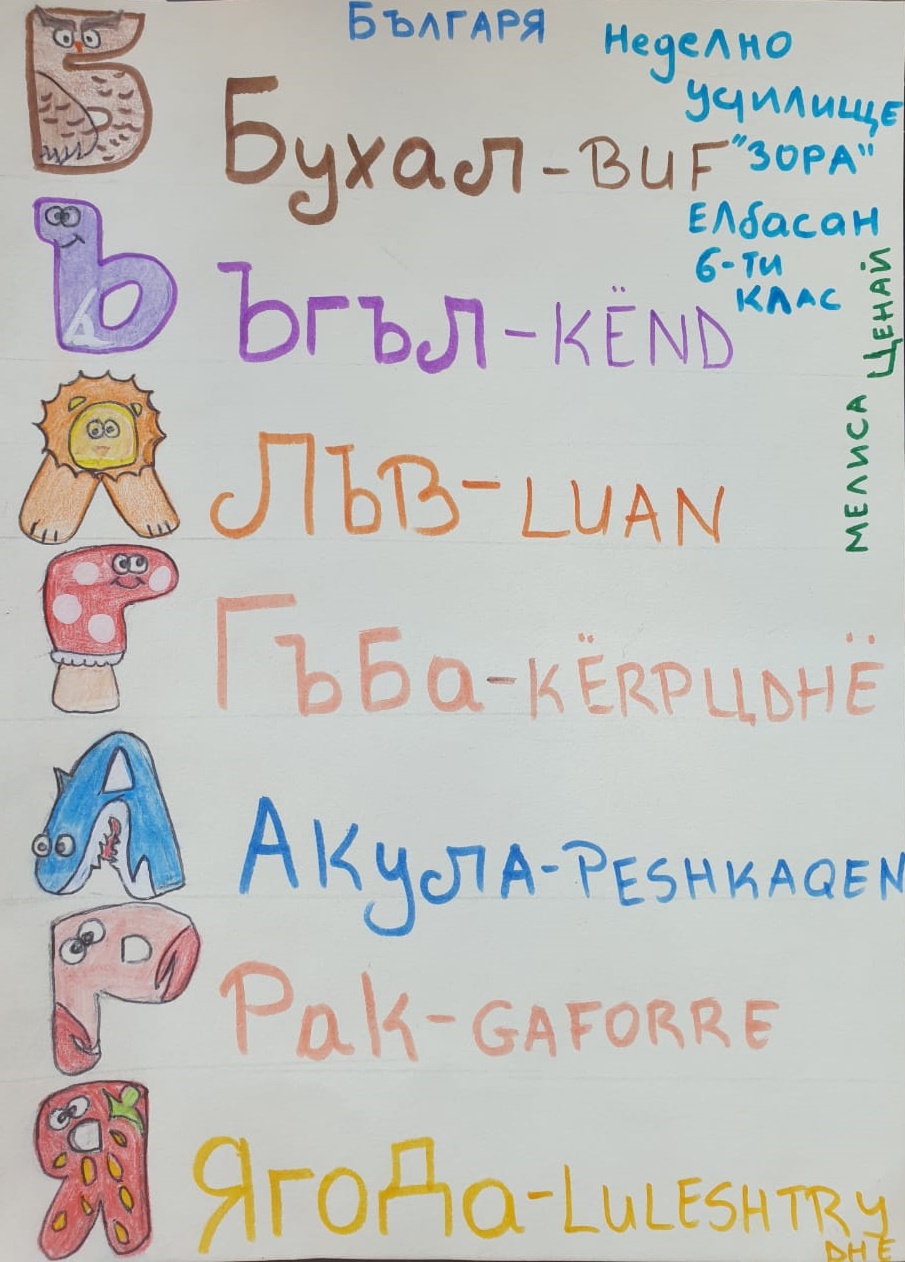 БЪЛГАРЯ
Неделно
училище
"ЗОРА"
Елбасан
6-ти
клас
МЕЛИСА ЦЕНАЙ
Б
Бухал-BUF
Ъ
Ъгъл-KËND
Л
Лъв-LUAN
Г
Гъба-KËRPЦDHË
А
Акула-PESHKAQEN
Р
Рак-GAFORRE
Я
Ягода-LULESHTRY
DHE